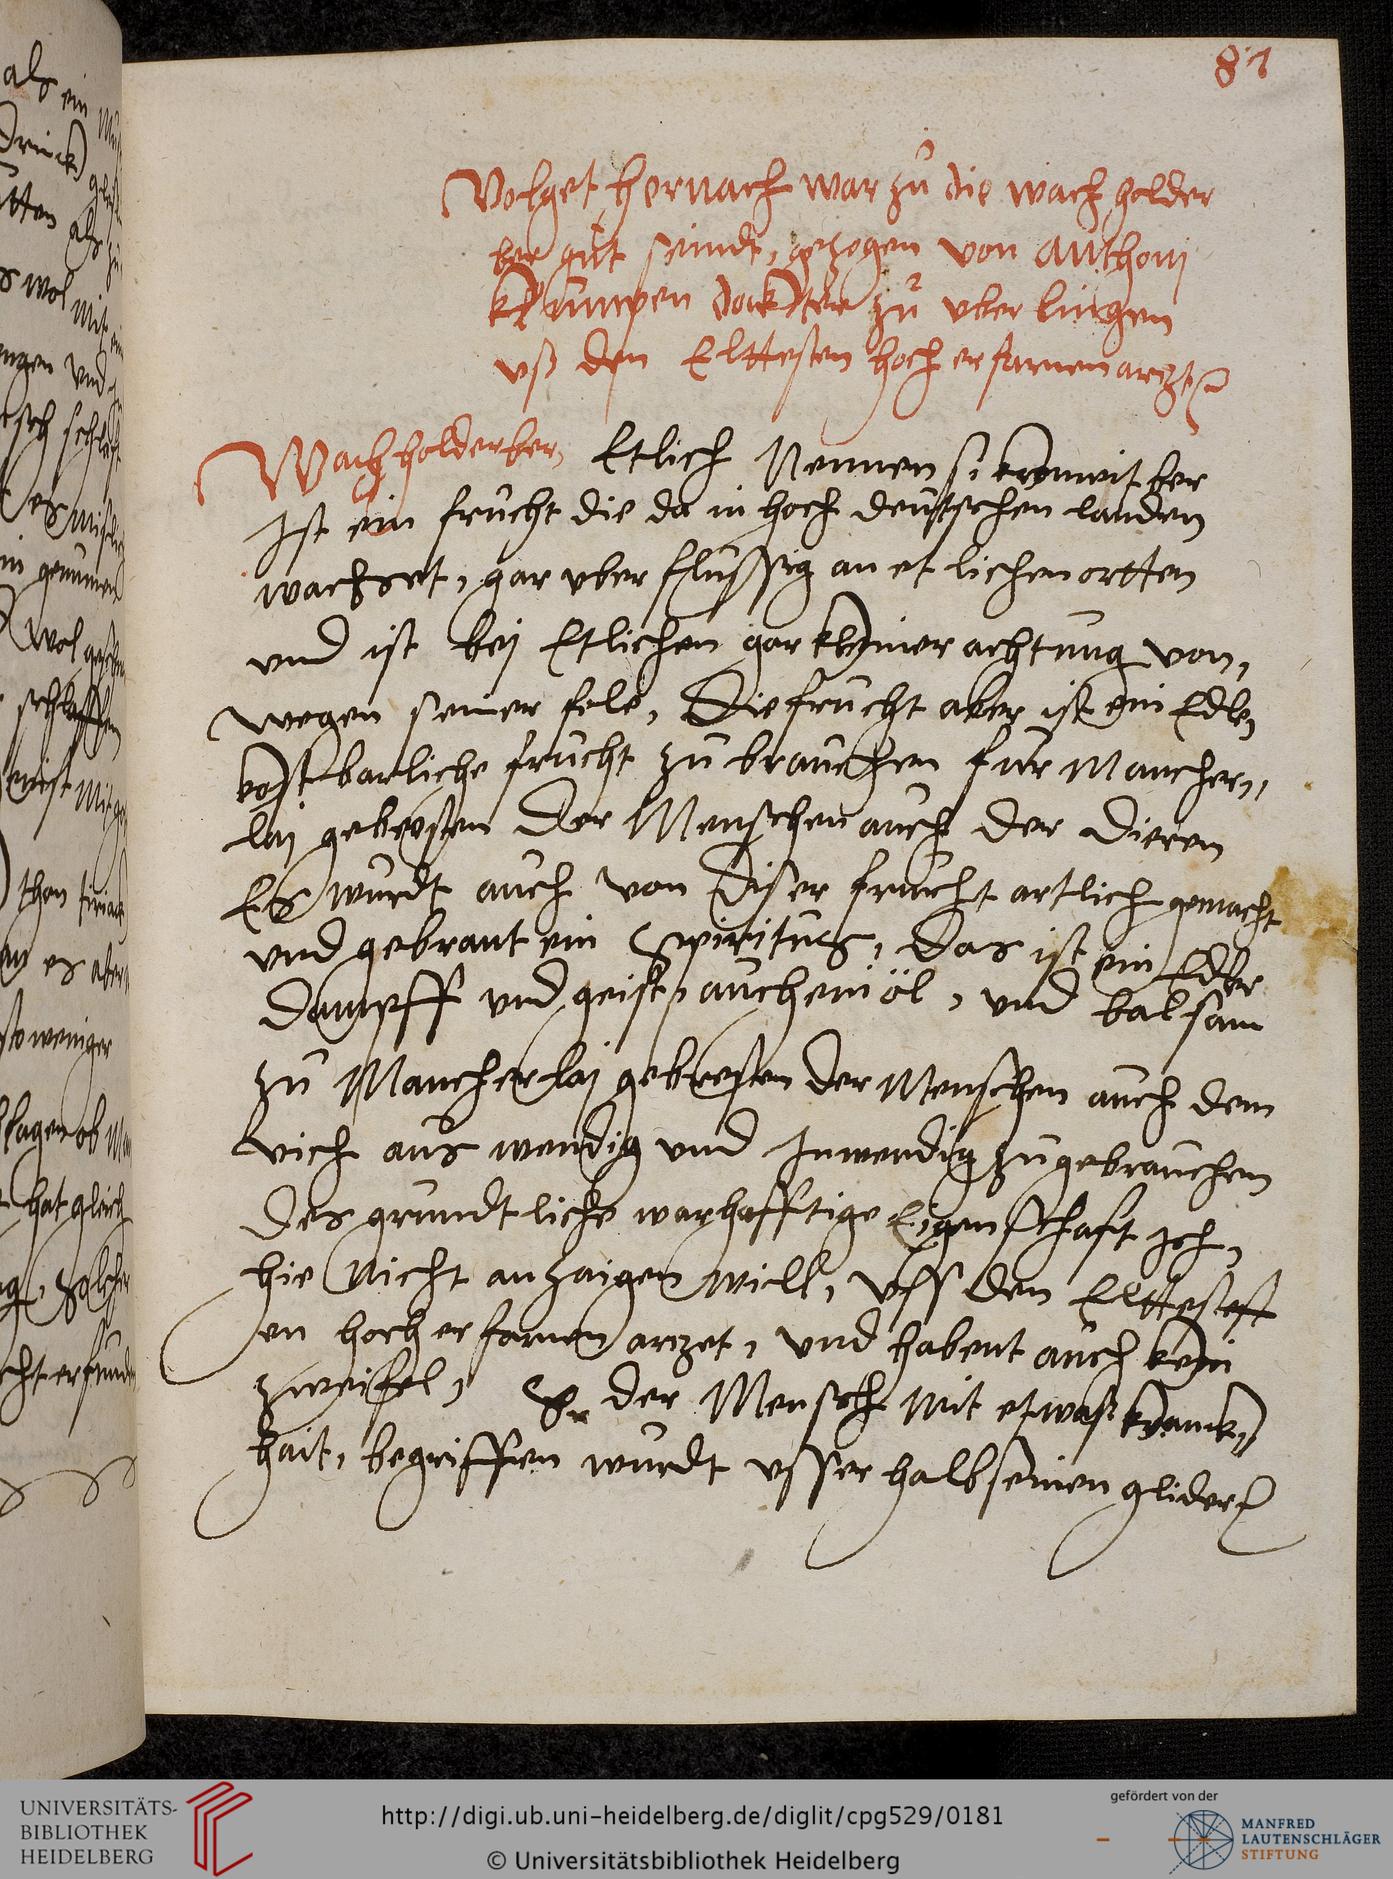 81
Volget hernach war zů die wachholder
ber gůt seindt, gezogen von anthonj
krumpen docktter zů vberlingen
vß den Elttesten hocherfarnen arczt
Wachholderber, Etlich Nennen si kronwit ber
Ist ein frucht die da in hoch deutschen landen
wachset, gar vberflüssig an etlichen ortten
vnd ist bej Etlichen gar kleiner achtung von,
wegen seiner fele, Die frucht aber ist ein Edle,
kostbarliche frucht zů brauchen für Mancher,,
laj gebresten der Menschen auch der dieren
Es wurdt auch von diser frucht artlich gemacht
vnd gebrant ein spiritus, Das ist ein Edler
dampff vnd geist, auch ein öl, vnd balsam
zů Mancherlaj gebresten der Menschen auch dem
vich aus wendig vnd Inwendig zůgebrauchen
Des grundtliche warhafftige Eigenschaft Ich,
hie Nicht anzaigen will, vss den Elttesest
en hocherfarnen arczet, vnd habent auch kein
zweifel, So der Mensch Mit etwas kranck,,
hait, begriffen wurdt vsserhalb seinen glidern
als ein
wol mit
vnd
es
wol
schlaffen
mit
thon
es aber
weniger
ob
hat gleich
UNIVERSITÄTS-
BIBLIOTHEK
HEIDELBERG
http://digi.ub.uni-heidelberg.de/diglit/cpg529/0181
© Universitätsbibliothek Heidelberg
gefördert von der
MANFRED
LAUTENSCHLÄGER
STIFTUNG